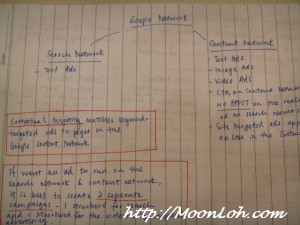 Google Network
Search Network
- Text Ads
Content Network
- Text Ads
- Image Ads
- Video Ads
- CTR on Content Network
no EFFECT on the rank
ad on search
- Site targeted ads app
on sites in the Content
Contextual targeting matches keyword-
targeted ads to pages in the
Google Content Network
If want ads to run on the
search network & content network,
it is best to create 2 separate
campaigns - 1 structured for search
and 1 structured for the
advertising
http://MoonLoh.com